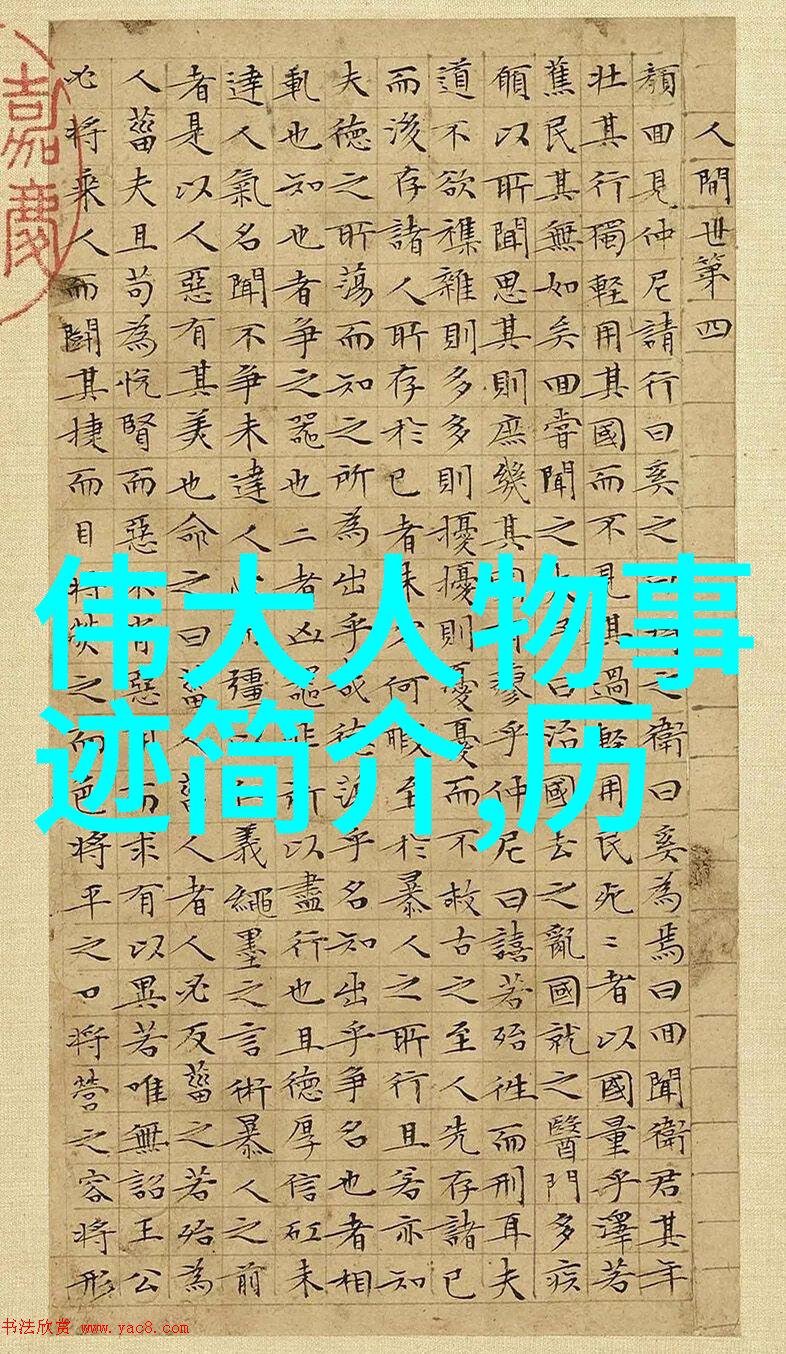 人間世第四
顏回見仲尼請行曰奚之之衛曰奚為焉曰回聞衛君其年
壯其行獨輕用其國而不見其過輕用民死〻者以國量乎澤若
蕉民其無如矣回嘗聞之夫曰治國去之亂國就之醫門多疾
願以所聞思其則庶幾其瘳乎仲尼曰譆若殆往而刑耳夫
道不欲襍雜則多多則擾擾則憂憂而不救古之至人先存諸已
而後存諸人所存於已者未何暇至於暴人之所行且若亦知
夫德之所蕩而知之所為出乎哉德蕩乎名知出乎爭名也者相
軋也知也者爭之器也二者凶器非所以盡行也且德厚信矼未
達人氣名聞不爭未達人彊仁義繩墨之言術暴人之前
者是以人惡有其美也命之曰菑人菑人者人必反菑之若殆為
人菑夫且苟為悅賢而惡不肖惡用而求有以異若唯無詔王公
必將乘人而鬬其捷而目將熒之而色將平之口將營之容將形
嘉慶
伟大人物事
迹简介,历
书法欣赏 www.yac8.com